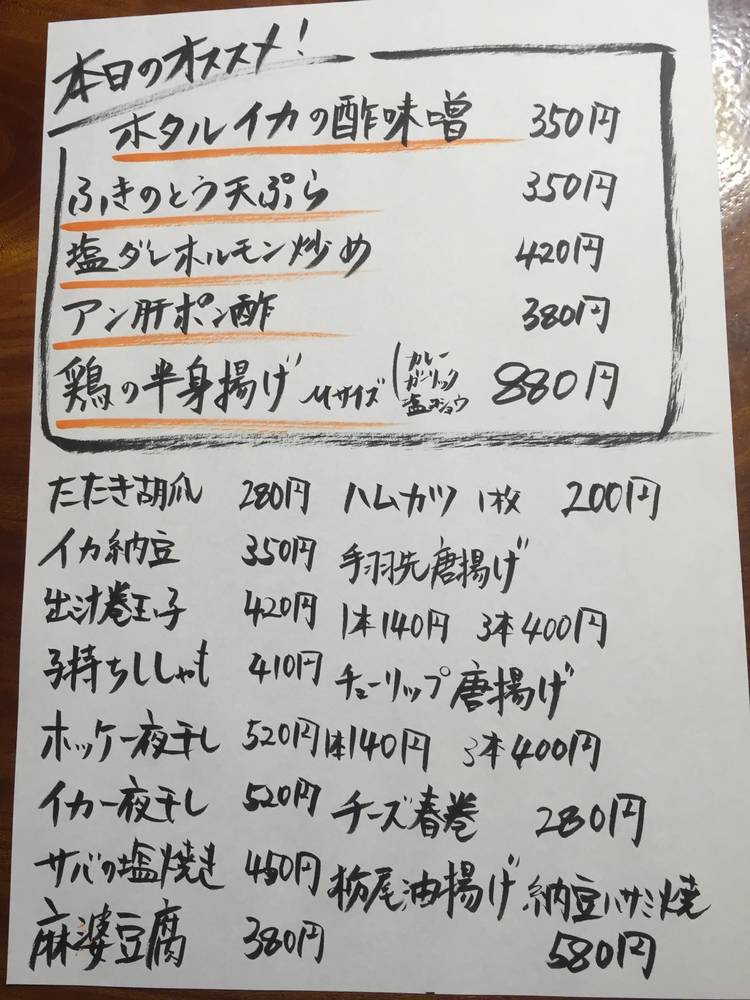 本日のオススメ!
ホタルイカの酢味噌 350円
ふきのとう天ぷら 350円
塩ダレホルモン炒め 420円
アン肝ポン酢 380円
鶏の半身揚げ Mサイズ (カレー ガーリック 塩コショウ 880円
たたき胡瓜 280円
イカ納豆 350円
出汁巻玉子 420円
子持ちししゃも 410円
ホッケ一夜干し 520円
イカ一夜干し 520円
サバの塩焼き 450円
麻婆豆腐 380円
ハムカツ 1枚 200円
手羽先唐揚げ
1本140円 3本400円
チューリップ唐揚げ
1本140円 3本400円
チーズ春巻 280円
栃尾油揚げ 納豆ハサミ焼
580円